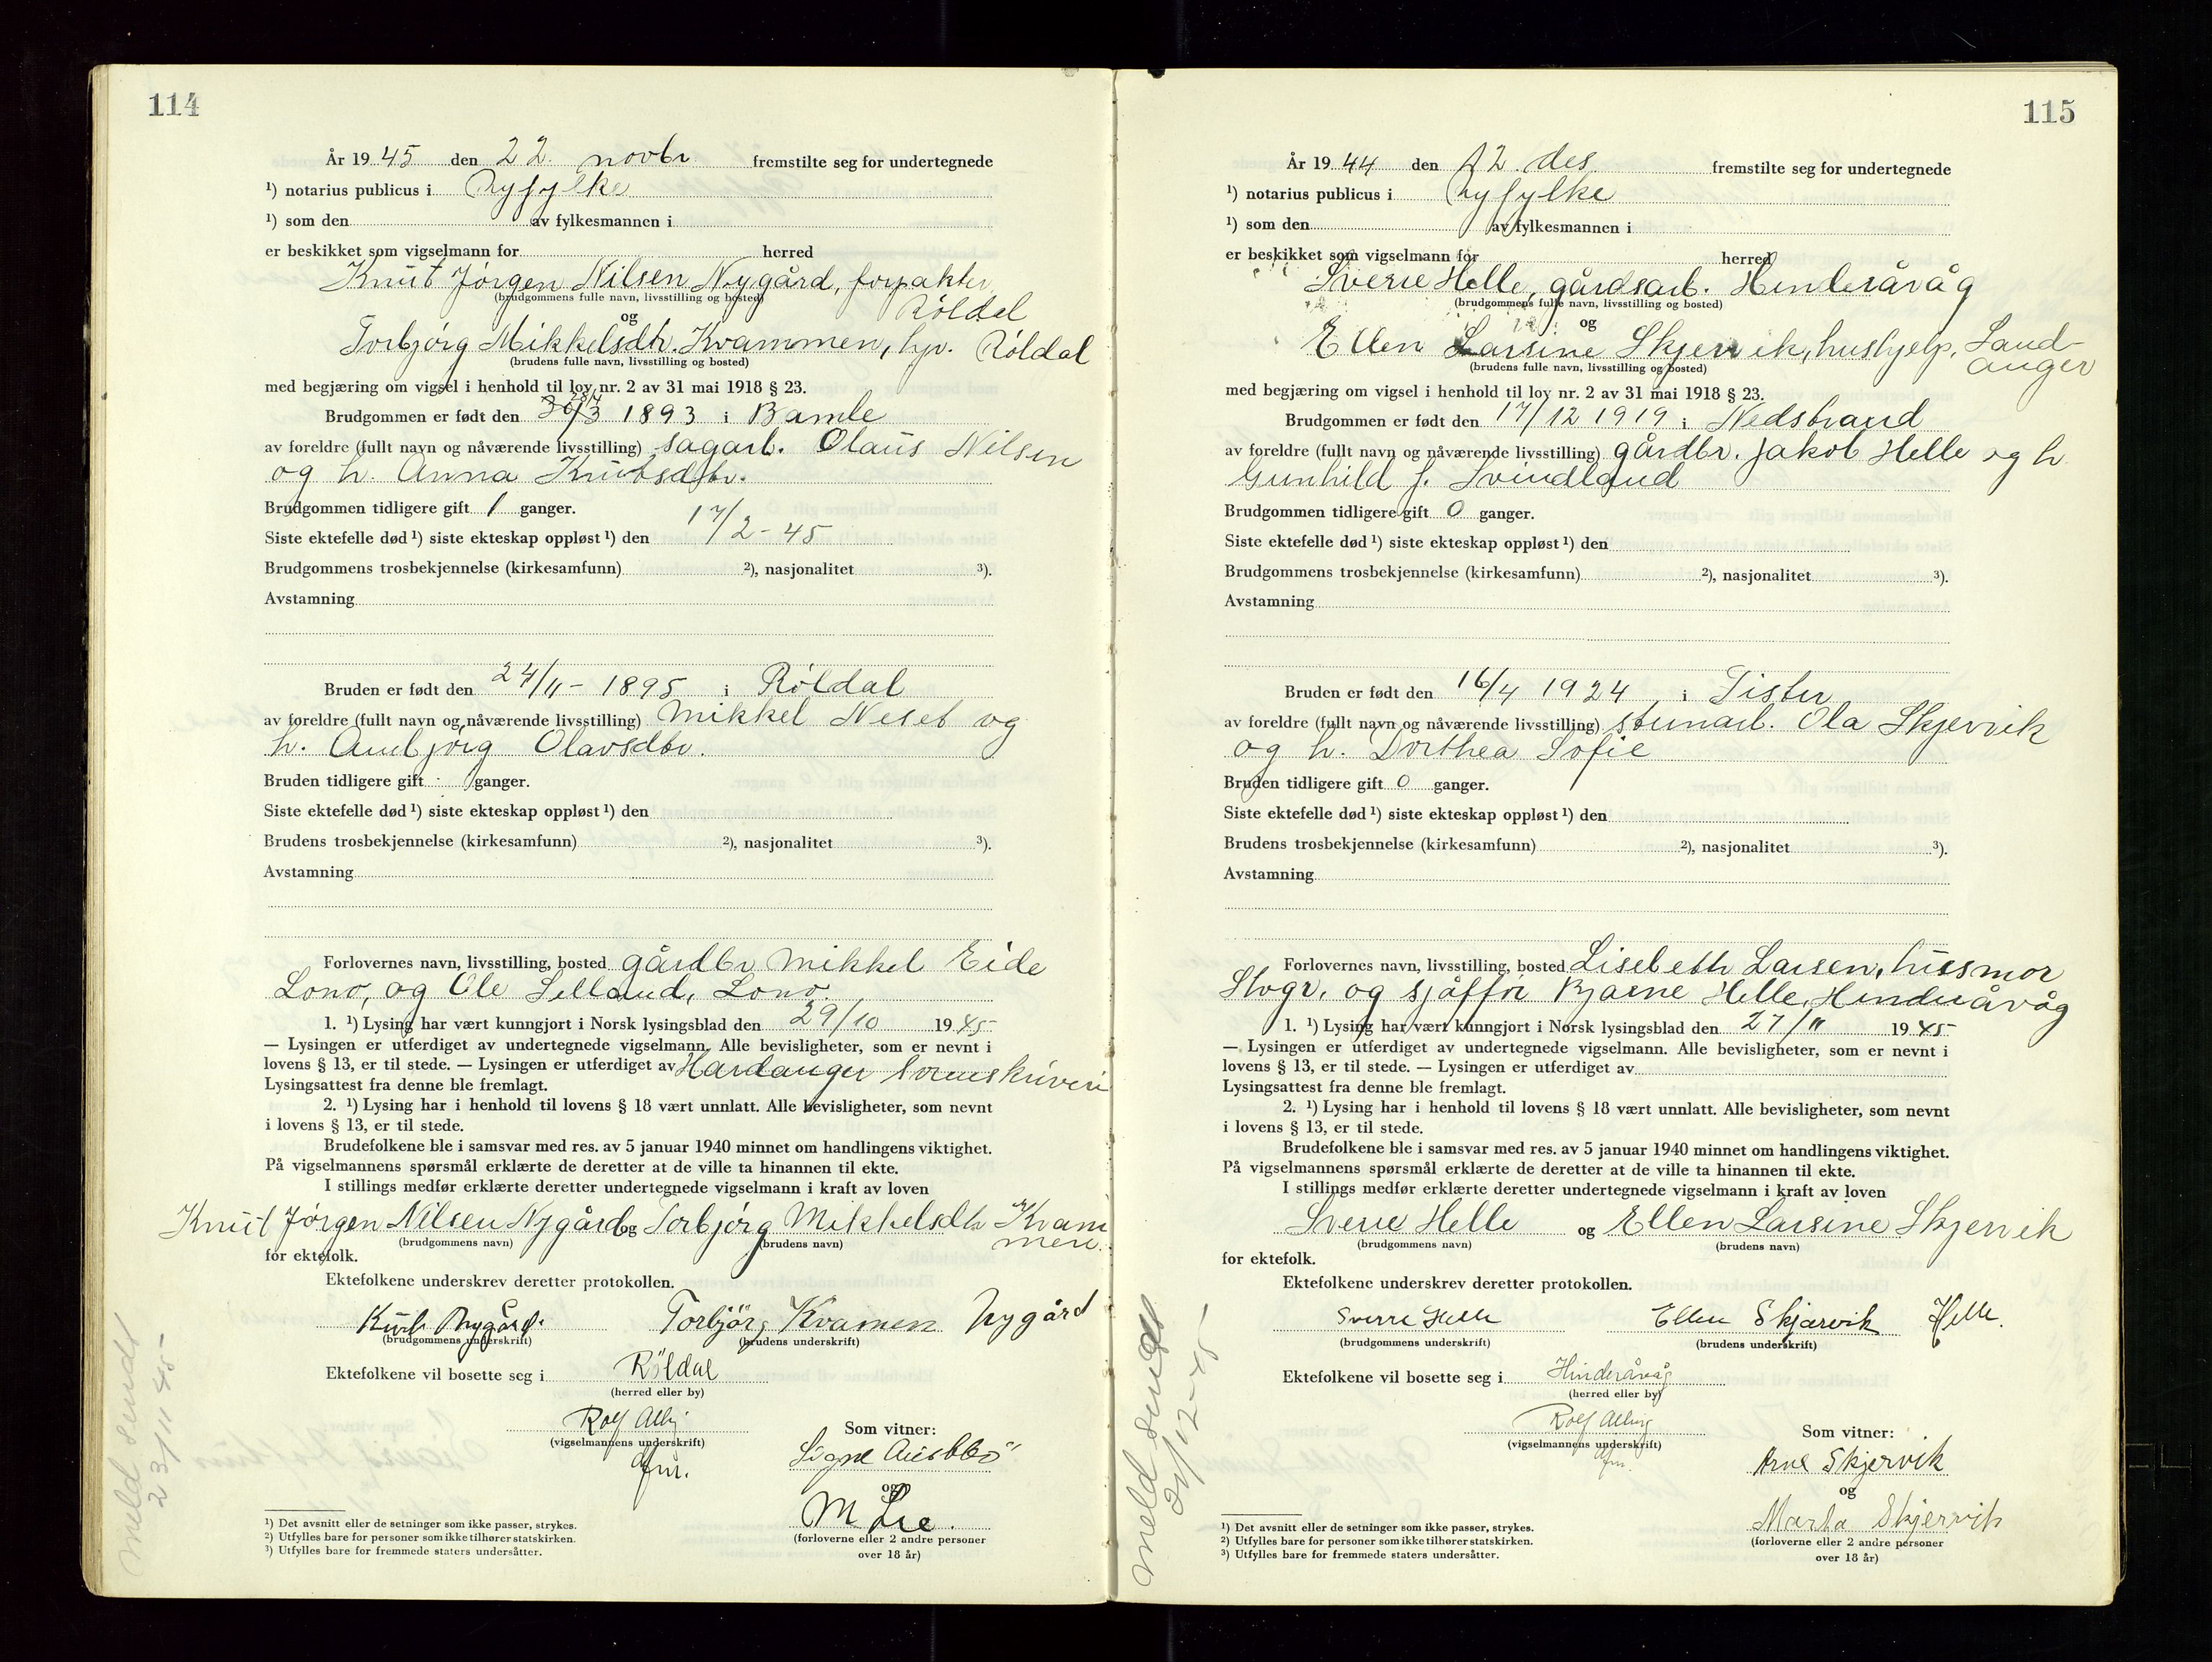 114
År 19 45 den 22. novbr fremstilte seg for undertegnede
¹) notarius publicus i Ryfylke
¹) som den av fylkesmannen i
er beskikket som vigselmann for herred
Knut Jørgen Nilsen Nygård, forpakter,
(brudgommens fulle navn, livsstilling og bosted)
Røldal
og
Torbjørg Mikkelsdtr. Kvammen, hp. Røldal
(brudens fulle navn, livsstilling og bosted)
med begjæring om vigsel i henhold til lov nr. 2 av 31 mai 1918 § 23.
Brudgommen er født den 1893 i Bamle
av foreldre (fullt navn og nåværende livsstilling) sagarb. Olaus Nilsen
og h. Anna Knutsdtr.
Brudgommen tidligere gift 1 ganger.
Siste ektefelle død ¹) siste ekteskap oppløst ¹) den 17/2 - 45
Brudgommens trosbekjennelse (kirkesamfunn) ²), nasjonalitet ³).
Avstamning
Bruden er født den 24/11 - 1895 i Røldal
av foreldre (fullt navn og nåværende livsstilling) Mikkel Neset og
h. Ambjørg Olavsdtr.
Bruden tidligere gift - ganger.
Siste ektefelle død ¹) siste ekteskap oppløst ¹) den
Brudens trosbekjennelse (kirkesamfunn) ²), nasjonalitet ³).
Avstamning
Forlovernes navn, livsstilling, bosted gårdbr Mikkel Eide
Lono, og Ole Selland, Lono.
1. ¹) Lysing har vært kunngjort i Norsk lysingsblad den 29/10 19 45
— Lysingen er utferdiget av undertegnede vigselmann. Alle bevisligheter, som er nevnt i
lovens § 13, er til stede. — Lysingen er utferdiget av Hardanger Sorenskriveri
Lysingsattest fra denne ble fremlagt.
2. ¹) Lysing har i henhold til lovens § 18 vært unnlatt. Alle bevisligheter, som nevnt
i lovens § 13, er til stede.
Brudefolkene ble i samsvar med res. av 5 januar 1940 minnet om handlingens viktighet.
På vigselmannens spørsmål erklærte de deretter at de ville ta hinannen til ekte.
I stillings medfør erklærte deretter undertegnede vigselmann i kraft av loven
Knut Jørgen Nilsen Nygård og Torbjørg Mikkelsdtr Kvam
(brudgommens navn) (brudens navn) men.
for ektefolk.
Ektefolkene underskrev deretter protokollen.
Knut Nygård. Torbjørg Kvamen Nygård
(brudgommens underskrift) (brudens underskrift)
Ektefolkene vil bosette seg i Röldal
(herred eller by)
Rolf Alby
(vigselmannens underskrift)
fm.
Som vitner:
Signe
og
M Lie.
(forloverne eller 2 andre personer
over 18 år)
¹) Det avsnitt eller de setninger som ikke passer, strykes.
²) Utfylles bare for personer som ikke tilhører statskirken.
³) Utfylles bare for fremmede staters undersåtter.
Meld sendt
23/11 45-
115
År 19 44 den 22. des. fremstilte seg for undertegnede
¹) notarius publicus i Ryfylke
¹) som den av fylkesmannen i
er beskikket som vigselmann for herred
Sverre Helle, gårdsarb. Hinderåvåg
(brudgommens fulle navn, livsstilling og bosted)
og
Ellen Larsine Skjervik, hushjelp, Sand-
(brudens fulle navn, livsstilling og bosted) anger
med begjæring om vigsel i henhold til lov nr. 2 av 31 mai 1918 § 23.
Brudgommen er født den 17/12 1919 i Nedstrand
av foreldre (fullt navn og nåværende livsstilling) gårdbr. Jakob Helle og h
Gunhild f. Svindland
Brudgommen tidligere gift 0 ganger.
Siste ektefelle død ¹) siste ekteskap oppløst ¹) den
Brudgommens trosbekjennelse (kirkesamfunn) ²), nasjonalitet ³).
Avstamning
Bruden er født den 16/4 1924 i Tister
av foreldre (fullt navn og nåværende livsstilling) stenarb. Ola Skjervik
og h. Dorthea Sofie
Bruden tidligere gift 0 ganger.
Siste ektefelle død ¹) siste ekteskap oppløst ¹) den
Brudens trosbekjennelse (kirkesamfunn) ²), nasjonalitet ³).
Avstamning
Forlovernes navn, livsstilling, bosted Lisebeth Larsen, husmor
Stvgr, og sjåffør Bjarne Helle, Hinderåvåg
1. ¹) Lysing har vært kunngjort i Norsk lysingsblad den 27/11 19 45
— Lysingen er utferdiget av undertegnede vigselmann. Alle bevisligheter, som er nevnt i
lovens § 13, er til stede. — Lysingen er utferdiget av
Lysingsattest fra denne ble fremlagt.
2. ¹) Lysing har i henhold til lovens § 18 vært unnlatt. Alle bevisligheter, som nevnt
i lovens § 13, er til stede.
Brudefolkene ble i samsvar med res. av 5 januar 1940 minnet om handlingens viktighet.
På vigselmannens spørsmål erklærte de deretter at de ville ta hinannen til ekte.
I stillings medfør erklærte deretter undertegnede vigselmann i kraft av loven
Sverre Helle og Ellen Larsine Skjervik
(brudgommens navn) (brudens navn)
for ektefolk.
Ektefolkene underskrev deretter protokollen.
Sverre Helle Ellen Skjærvik Helle.
(brudgommens underskrift) (brudens underskrift)
Ektefolkene vil bosette seg i Hinderåvåg
(herred eller by)
Rolf Alby
(vigselmannens underskrift)
fm.
Som vitner:
Arne Skjervik
og
Marta Skjervik
(forloverne eller 2 andre personer
over 18 år)
¹) Det avsnitt eller de setninger som ikke passer, strykes.
²) Utfylles bare for personer som ikke tilhører statskirken.
³) Utfylles bare for fremmede staters undersåtter.
Meld sendt
22/12-45-